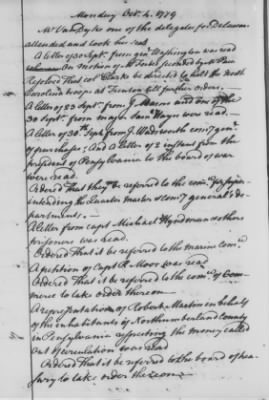 Monday Oct. 4. 1779
Mr Van Dyke one of the delegates for Delaware
attended and took his seat.
A letter of 30 Sept. from gen Washington was read
Whereupon On motion of Mr Forbes seconded by Mr Paca
Resolved That col Clarke be directed to halt the North
Carolina troops at Trenton till further orders.
A letter of 23 Sept. from J. Nourse and one of the
30 Sept. from major Saml Hayes were read.
A letter of 30th Sept from J. Wadsworth comy gen
of purchases; And a letter of 2 instant from the
president of Pensylvania to the board of war
were read.
Ordered That they be referred to the come. for superin
tending the quarter master & comy general's de
partments.
A letter from capt Michael Wyndman & others
prisoners was read.
Ordered That it be referred to the marine come
A petition of Capt R. Moor was read
Ordered That it be referred to the come of Com
merce to take order thereon.
A representation of Robert Martin in behalf
of the inhabitants of Northumberland County
in Pensylvania respecting the money called
out of circulation was read
Ordered That it be referred to the board of trea
sury to take order thereon.